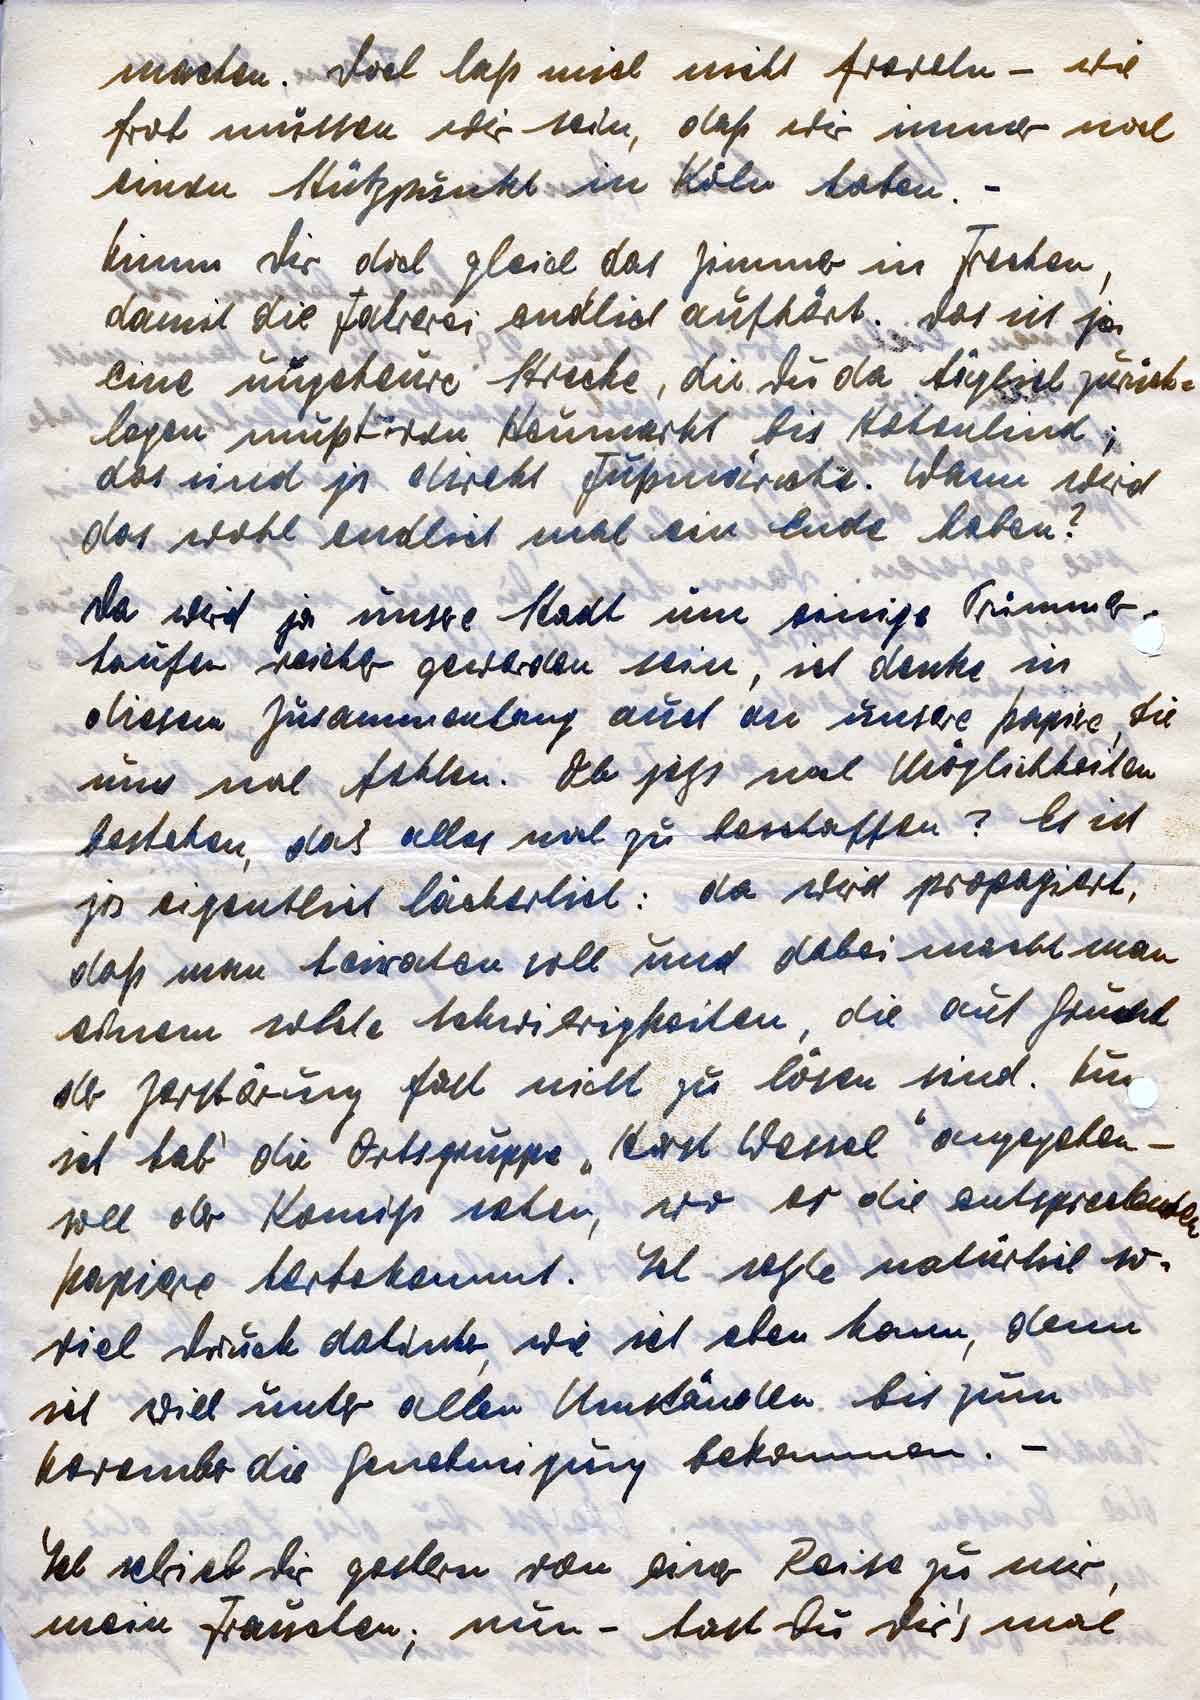 machen. Doch laß mich nicht freveln – wie
froh müssen wir sein, daß wir immer noch
einen Stützpunkt in Köln haben. –
Nimm Dir doch gleich das Zimmer in Frechen,
damit die Fahrerei endlich aufhört. Das ist ja
eine ungeheure Strecke, die Du da täglich zurück=
legen mußt von Neumarkt bis Hohenlind;
das sind ja direkt Fußmärsche. Wann wird
das wohl endlich mal ein Ende haben?
Da wird ja unsere Stadt um einige Trümmer-
haufen reicher geworden sein, ich denke in
diesem Zusammenhang auch an unsere Papiere, die
uns noch fehlen. Ob jetzt noch Möglichkeiten
bestehen, das alles noch zu beschaffen? Es ist
ja eigentlich lächerlich: da wird propagiert,
daß man heiraten soll und dabei macht man
einem solche Schwierigkeiten, die auf Grund
der Zerstörung fast nicht zu lösen sind. Nun
ich hab' die Ortsgruppe „Horst Wessel" angegeben –
soll der Komiß sehen, wo er die entsprechenden
Papiere herbekommt. Ich setze natürlich so-
viel Druck dahinter, wie ich eben kann, denn
ich will unter allen Umständen bis zum
November die Genehmigung bekommen. –
Ich schrieb Dir gestern von einer Reise zu mir,
mein Frauchen; nun – hast Du Dir's mal